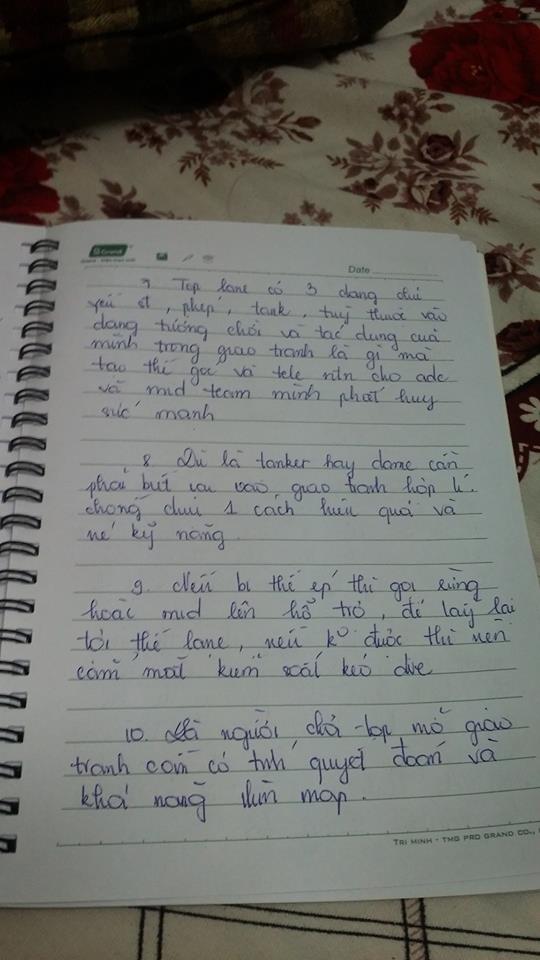 Grand
Date
7 Top lane có 3 dạng chủ
yếu st, phép, tank, tuỳ thuộc vào
dạng tướng chơi và tác dụng của
mình trong giao tranh là gì mà
tạo thế goi và tele ntn cho adc
và mid team mình phát huy
sức mạnh
8. Dù là tanker hay dame cần
phải biết lao vào giao tranh hợp lí
chống chịu 1 cách hiệu quả và
né kỹ năng.
9. Nếu bị thế ép thì gọi rừng
hoặc mid lên hổ trợ, để lấy lại
lợi thế lane, nếu ko được thì nên
cắm mắt kiểm soát kẻo dive
10. Là người chơi top mở giao
tranh cần có tính quyết đoán và
khả năng nhìn map.
TRI MINH - TMG PRO GRAND CO.,